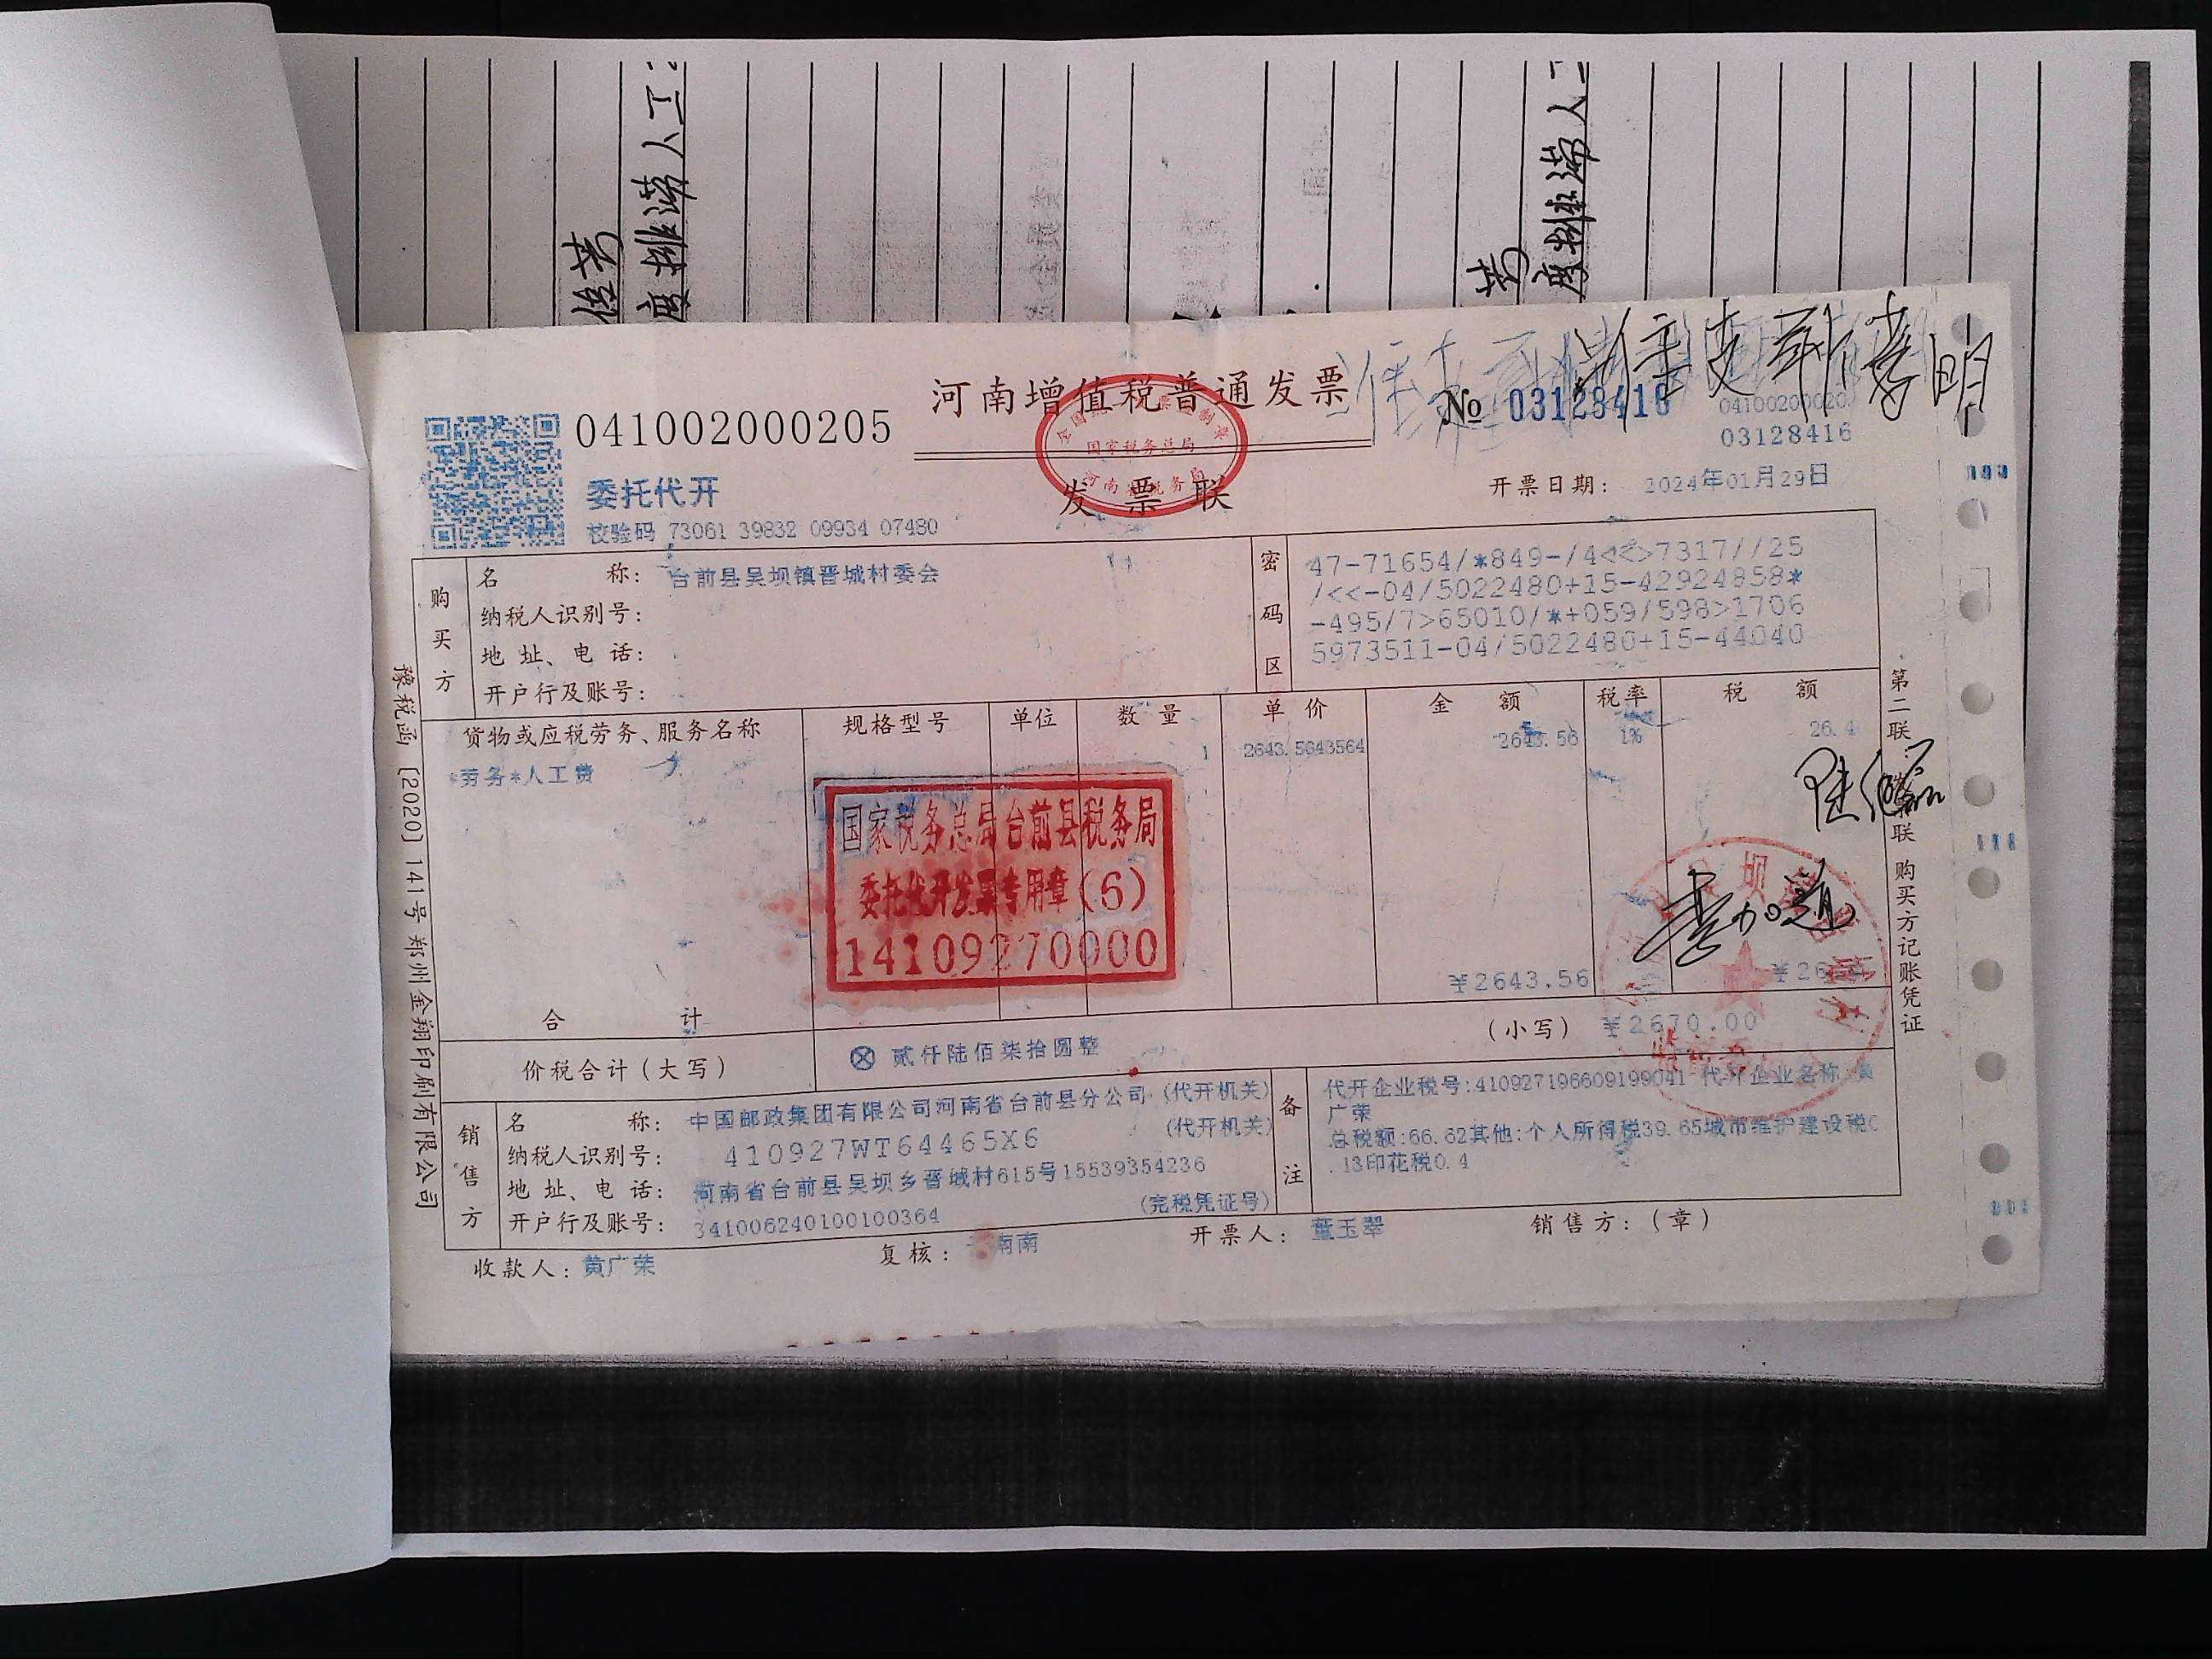 河南增值税普通发票
041002000205
№ 03128416
03128416
委托代开
发票联
开票日期： 2024年01月29日
校验码 73061 39832 09934 07480
国家税务总局
购买方
名称： 台前县吴坝镇晋城村委会
纳税人识别号：
地址、电话：
开户行及账号：
密码区
47-71654/*849-/4<<>7317//25
/<<-04/5022480+15-42924858*
-495/7>65010/*+059/598>1706
5973511-04/5022480+15-44040
货物或应税劳务、服务名称 规格型号 单位 数量 单价 金额 税率 税额
*劳务*人工费 1 2643.5643564 2643.56 1% 26.4
国家税务总局台前县税务局
委托代开发票专用章(6)
14109270000
合计 ¥2643.56
价税合计（大写） ⊗ 贰仟陆佰柒拾圆整 （小写） ¥2670.00
销售方
名称： 中国邮政集团有限公司河南省台前县分公司 (代开机关)
纳税人识别号： 410927WT64465X6 (代开机关)
地址、电话： 河南省台前县吴坝乡晋城村615号15539354236
开户行及账号： 341006240100100364 (完税凭证号)
备注
代开企业税号:410927196609199041 代开企业名称:黄
广荣
总税额:66.62其他:个人所得税39.65城市维护建设税0
.13印花税0.4
收款人：黄广荣
复核： 南南
开票人： 董玉翠
销售方：（章）
豫税函［2020］141号郑州金翔印刷有限公司
第二联 联 购买方记账凭证